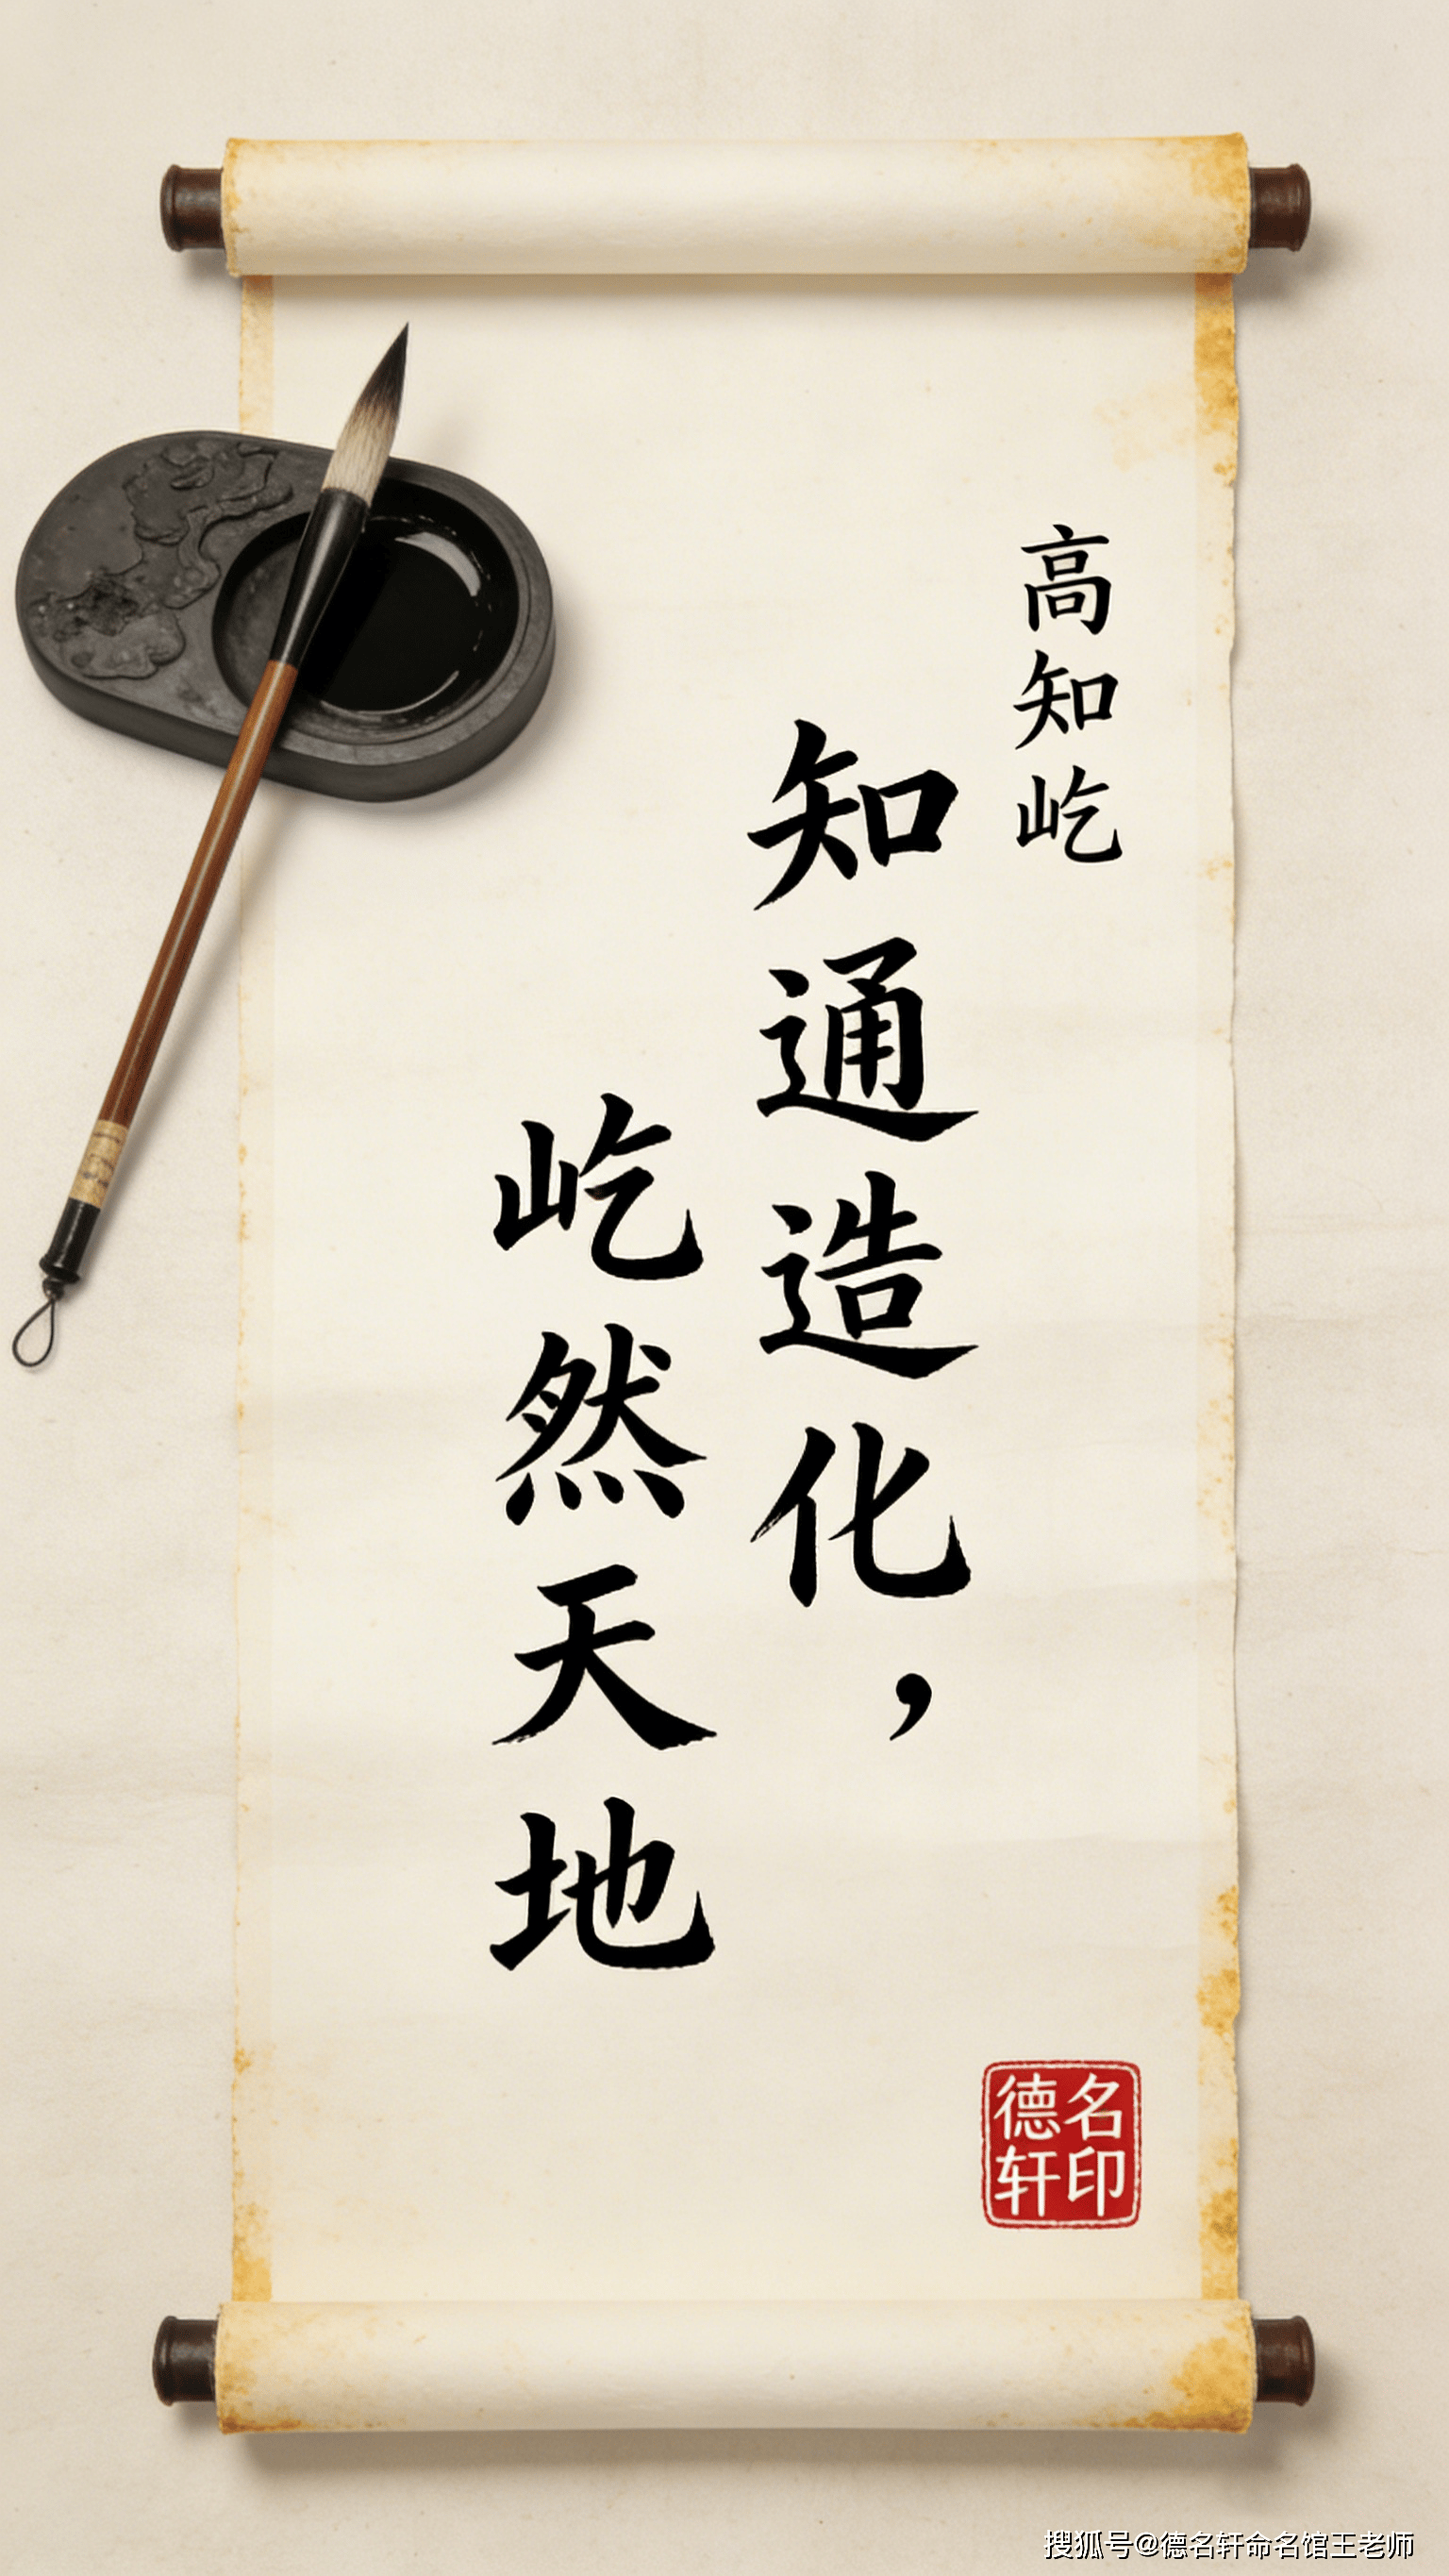 高知屹
知通造化，
屹然天地
德名
轩印
搜狐号@德名轩命名馆王老师